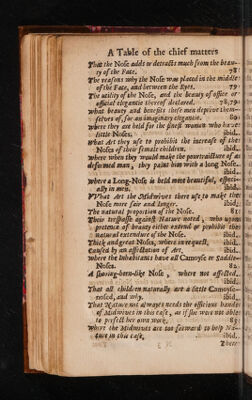 A Table of the chief matters
That the Nose adds or detracts much from the beau-
ty of the Face. 78
The reasons why the Nose was placed in the middle
of the Face, and between the Eyes. 79
The utility of the Nose, and the beauty of office or
official elegantie thereof declared. 78,79
What beauty and benefits those men deprive them-
selves of, for an imaginary elegantie. 80
Where they are held for the finest women who have
little Noses. ibid.
What Art they use to prohibit the increase of the
Noses of their female children. ibid.
Where when they would make the pourtraicture of a
deformed man, they paint him with a long Nose.
ibid.
Where a Long-Nose is held more beautiful, especi-
ally in men. ibid.
What Art the Midwives there use to make the
Nose more fair and longer. ibid.
The natural proportion of the Nose. 81
Their trespasse against Nature noted, who upon
pretence of beauty either extend or prohibit the
natural extendure of the Nose. ibid.
Thick and great Noses, where in request, ibid.
Caused by an affectation of Art. ibid.
Where the Inhabitants have all Camoyse or Saddle-
Noses. 82
A shooing-horn-like Nose, where not affected.
ibid.
That all children naturally are a little Camoyse-
nosed, and why. ibid.
That Nature not alwayes needs the officious hands
of Midwives in this case, as if she were not able
to perfect her own work. 83
Where the Midwives are too forward to help Na-
ture in this case, ibid.